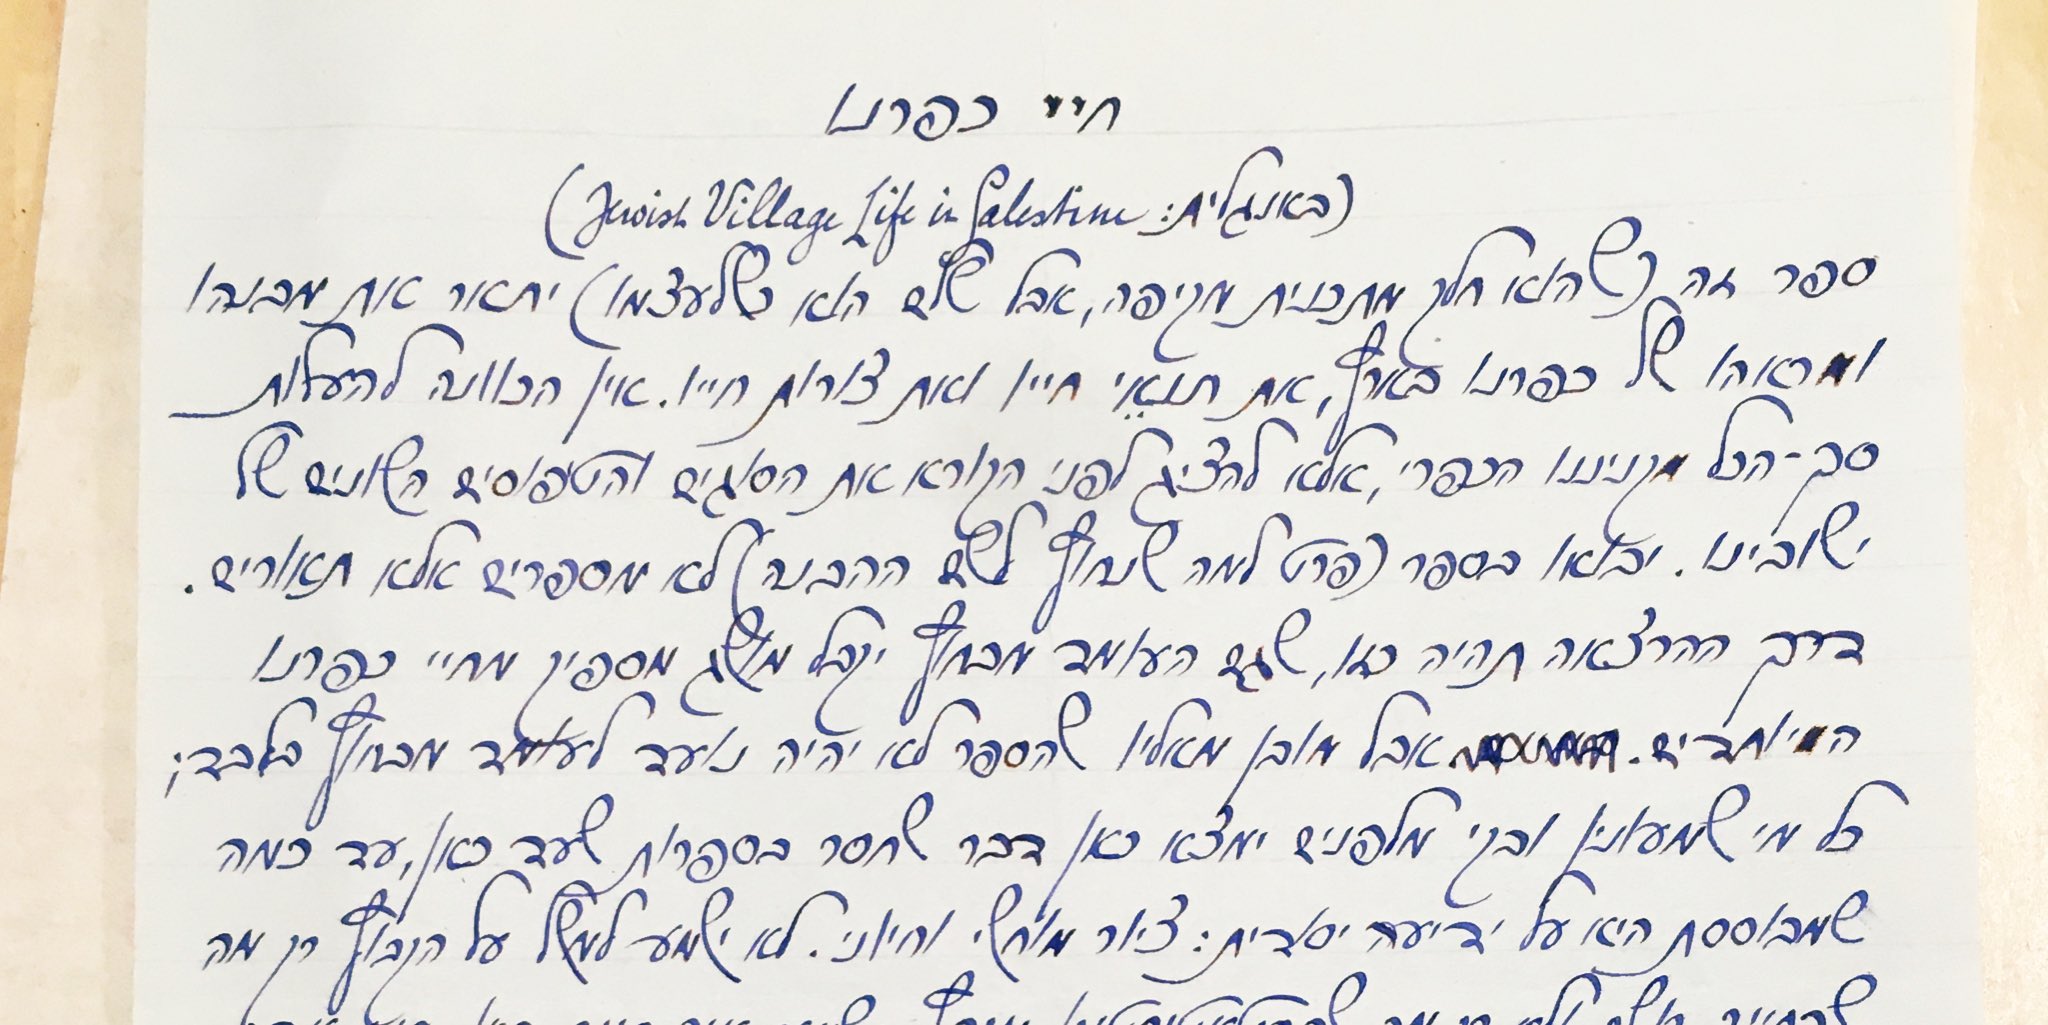 חיי כפרנו
(באנגלית: Jewish Village Life in Palestine)
ספר זה (שהוא חלק מתכנית מקיפה, אבל שלם הוא כשלעצמו) יתאר את מבנהו
ומראהו של כפרנו בארץ, את תנאֵי חייו ואת צורות חייו. אין הכוונה להעלות
סך-הכל מקניננו הכפרי, אלא להציג לפני הקורא את הסוגים והטפוסים השונים של
ישובינו. יבואו בספר (פרט למה שנחוץ לשם ההבנה) לא מספרים אלא תאורים.
דרך ההרצאה תהיה כזו, שגם העומד מבחוץ יקבל מושג מספיק מחיי כפרנו
המיוחדים. אבל מובן מאליו שהספר לא יהיה נועד לעומד מבחוץ בלבד;
כל מי שמעונין ובקי מלפנים ימצא כאן דבר שחסר בספרות שעד כאן, עד כמה
שמבוססת היא על ידיעה יסודית: ציור מוחשי וחיוני. לא ישמע למשל על הקבוץ רק מה